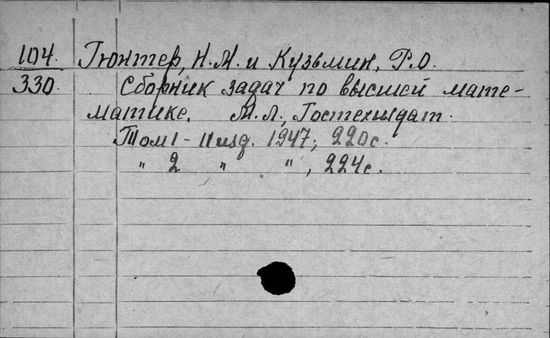 104. Гюнтер, Н.М. и Кузьмин, Р.О.
330. Сборник задач по высшей мате-
матике. М.Л., Гостехиздат.
Том 1 - 11 изд. 1947, 220с.
" 2 " ", 224с.